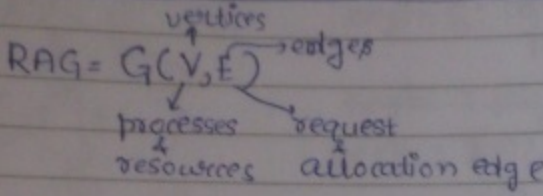 vertices
RAG = G(V,E) → edges
processes request
& &
resources allocation edge